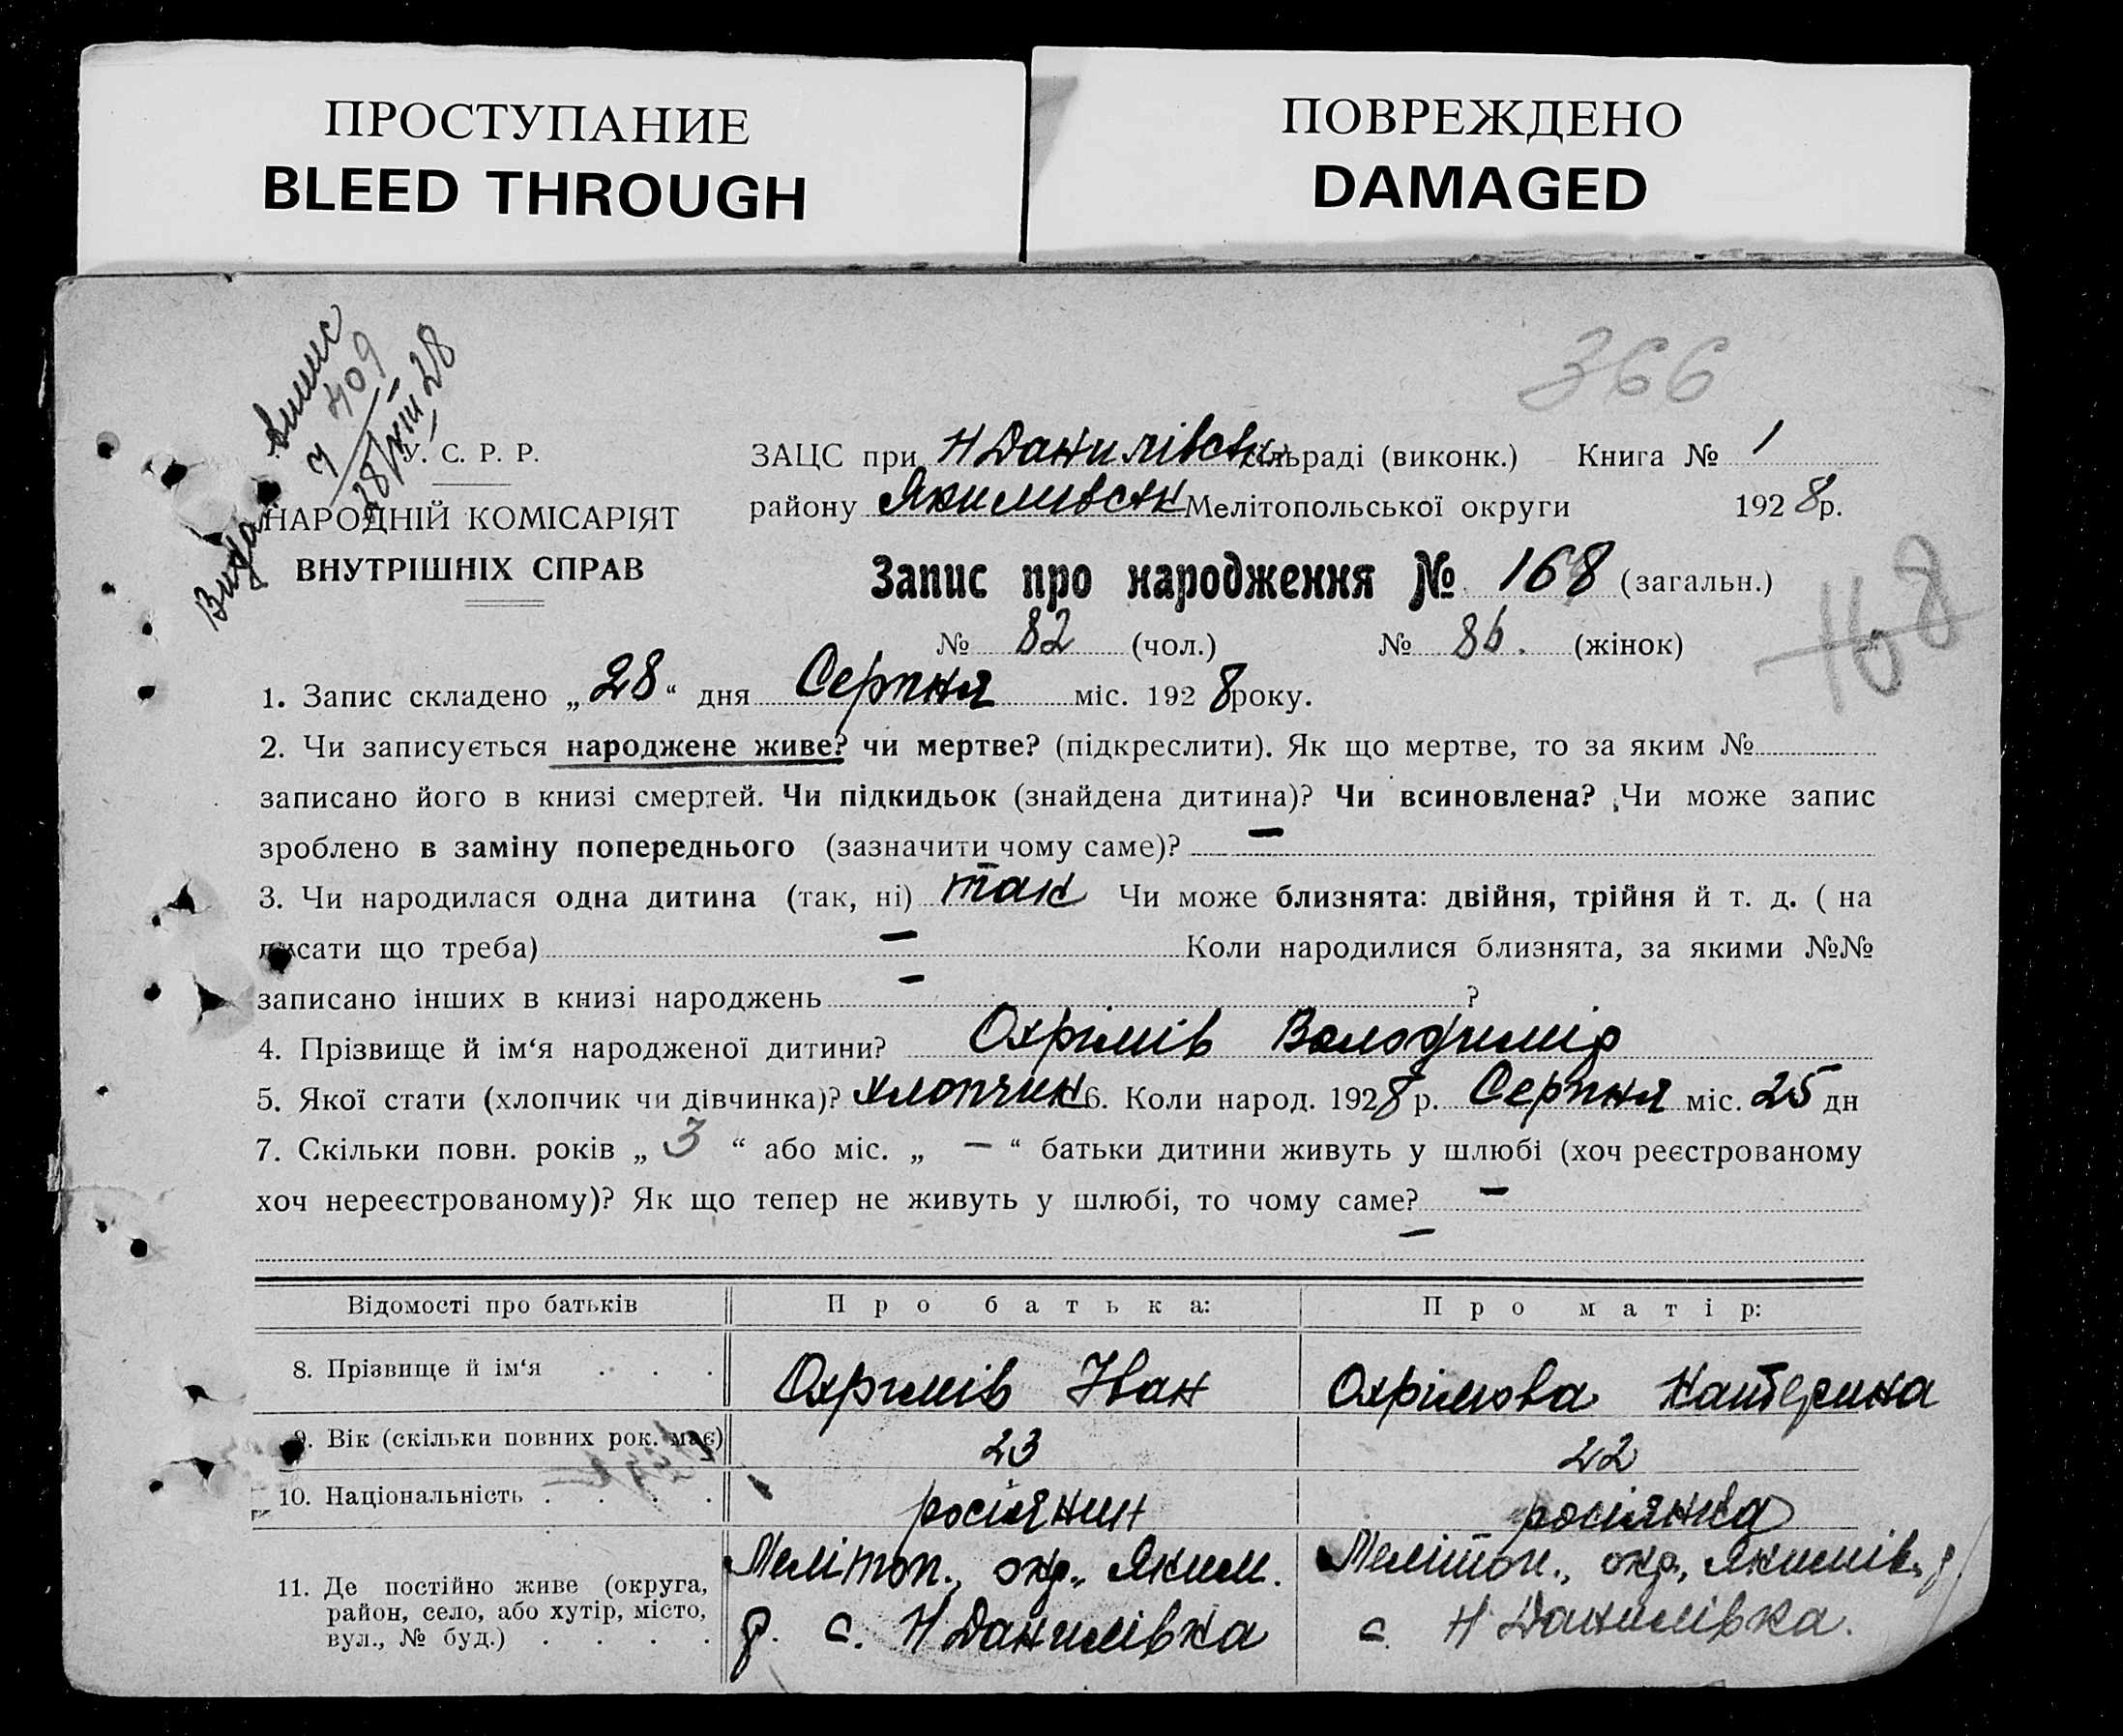 ПРОСТУПАНИЕ
BLEED THROUGH
ПОВРЕЖДЕНО
DAMAGED
366
Видан випис
ч 409
28/VIII 28
У. С. Р. Р.
НАРОДНІЙ КОМІСАРІЯТ
ВНУТРІШНІХ СПРАВ
ЗАЦС при Н Данилівськ сільраді (виконк.) Книга № 1
району Якимівськ Мелітопольської округи 1928р.
Запис про народження № 168 (загальн.)
№ 82 (чол.) № 86. (жінок)
168
1. Запис складено „28“ дня Серпня міс. 1928 року.
2. Чи записується народжене живе? чи мертве? (підкреслити). Як що мертве, то за яким №
записано його в книзі смертей. Чи підкидьок (знайдена дитина)? Чи всиновлена? Чи може запис
зроблено в заміну попереднього (зазначити чому саме)? —
3. Чи народилася одна дитина (так, ні) так Чи може близнята: двійня, трійня й т. д. ( на
писати що треба) — Коли народилися близнята, за якими №№
записано інших в книзі народжень — ?
4. Прізвище й ім‘я народженої дитини? Охрімів Володимір
5. Якої стати (хлопчик чи дівчинка)? хлопчик 6. Коли народ. 1928 р. Серпня міс. 25 дн
7. Скільки повн. років „ 3 “ або міс. „ — “ батьки дитини живуть у шлюбі (хоч реєстрованому
хоч нереєстрованому)? Як що тепер не живуть у шлюбі, то чому саме? —
—
Відомості про батьків Про батька: Про матір:
8. Прізвище й ім‘я . . . Охримів Іван Охрімова Катерина
9. Вік (скільки повних рок. має) 23 22
10. Національність . . . . росіянин росіянка
11. Де постійно живе (округа, район, село, або хутір, місто, вул., № буд.) . . . .
Мелітоп., окр., Яким. р. с. Н Данилівка
Мелітоп., окр., Якимів. р с. Н Данилівка.